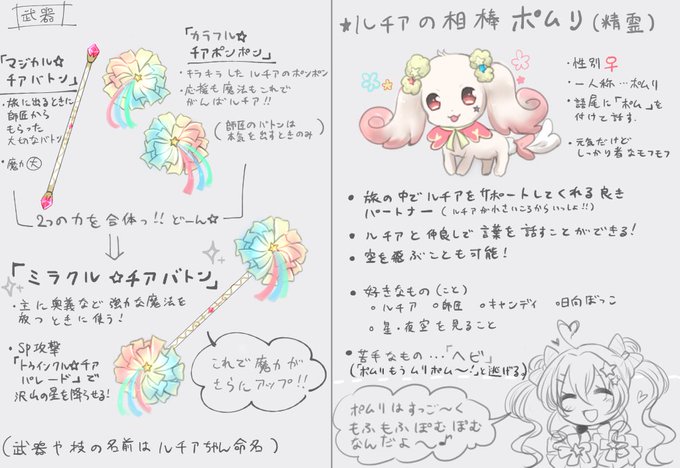 武器
「マジカル☆
チアバトン」
・旅に出るときに
師匠から
もらった
大切なバトン
・魔力大
「カラフル☆
チアポンポン」
・キラキラしたルチアのポンポン
・応援も魔法もこれで
がんばルチア!!
(師匠のバトンは
本気を出すときのみ)
2つの力を合体っ!!どーん☆
「ミラクル☆チアバトン」
・主に奥義など強力な魔法を
放つときに使う!
・SP攻撃
「トゥインクル☆チア
パレード」で
沢山の星を降らせる!
これで魔力が
さらにアップ!!
(武器や技の名前はルチアちゃん命名)
★ルチアの相棒 ポムリ(精霊)
・性別♀
・一人称…ポムリ
・語尾に「ポム」を
付けて話す。
・元気だけど
しっかり者なモフモフ
・旅の中でルチアをサポートしてくれる良き
パートナー(ルチアが小さいころからいっしょ!!)
・ルチアと仲良しで言葉を話すことができる!
・空を飛ぶことも可能!
・好きなもの(こと)
○ルチア ○師匠 ○キャンディ ○日向ぼっこ
○星・夜空を見ること
・苦手なもの…「ヘビ」
(「ポムリもうムリポム〜!」と逃げる。)
ポムリはすっご〜く
もふもふぽむぽむ
なんだよ〜♪